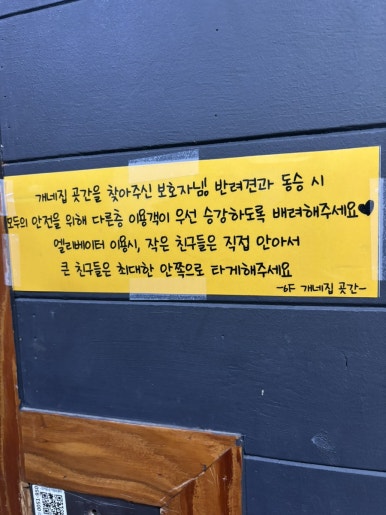 개네집 곳간을 찾아주신 보호자님! 반려견과 동승 시
모두의 안전을 위해 다른층 이용객이 우선 승강하도록 배려해주세요♥
엘리베이터 이용시, 작은 친구들은 직접 안아서
큰 친구들은 최대한 안쪽으로 타게해주세요
-6F 개네집 곳간-